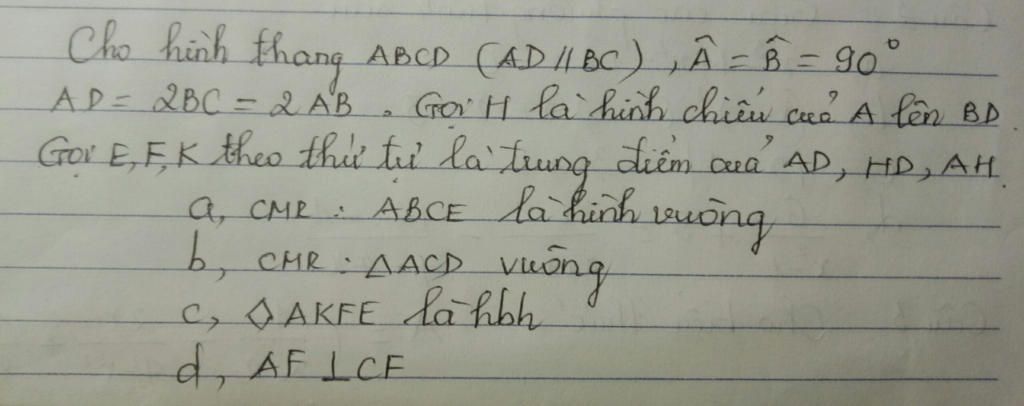 Cho hình thang ABCD (AD//BC), Â = B̂ = 90°
AD = 2BC = 2AB. Gọi H là hình chiếu của A lên BD.
Gọi E, F, K theo thứ tự là trung điểm của AD, HD, AH.
a, CMR : ABCE là hình vuông
b, CMR : △ACD vuông
c, ◇AKFE là hbh
d, AF ⊥ CF